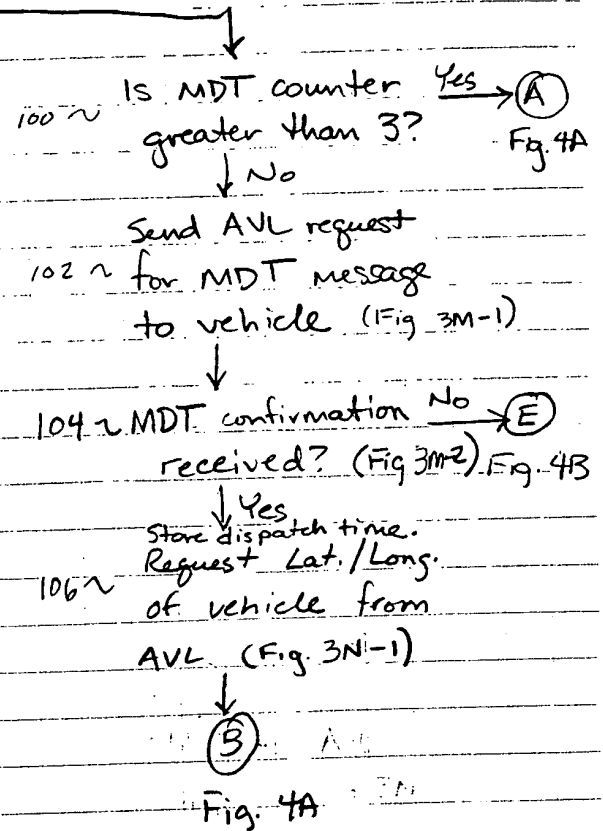 100 ~ Is MDT counter Yes A
greater than 3? Fig. 4A
No
Send AVL request
102 ~ for MDT message
to vehicle (Fig 3M-1)
104 ~ MDT confirmation No E
received? (Fig 3M-2) Fig. 4B
Yes
Store dispatch time.
106 ~ Request Lat./Long.
of vehicle from
AVL (Fig. 3N-1)
B
Fig. 4A